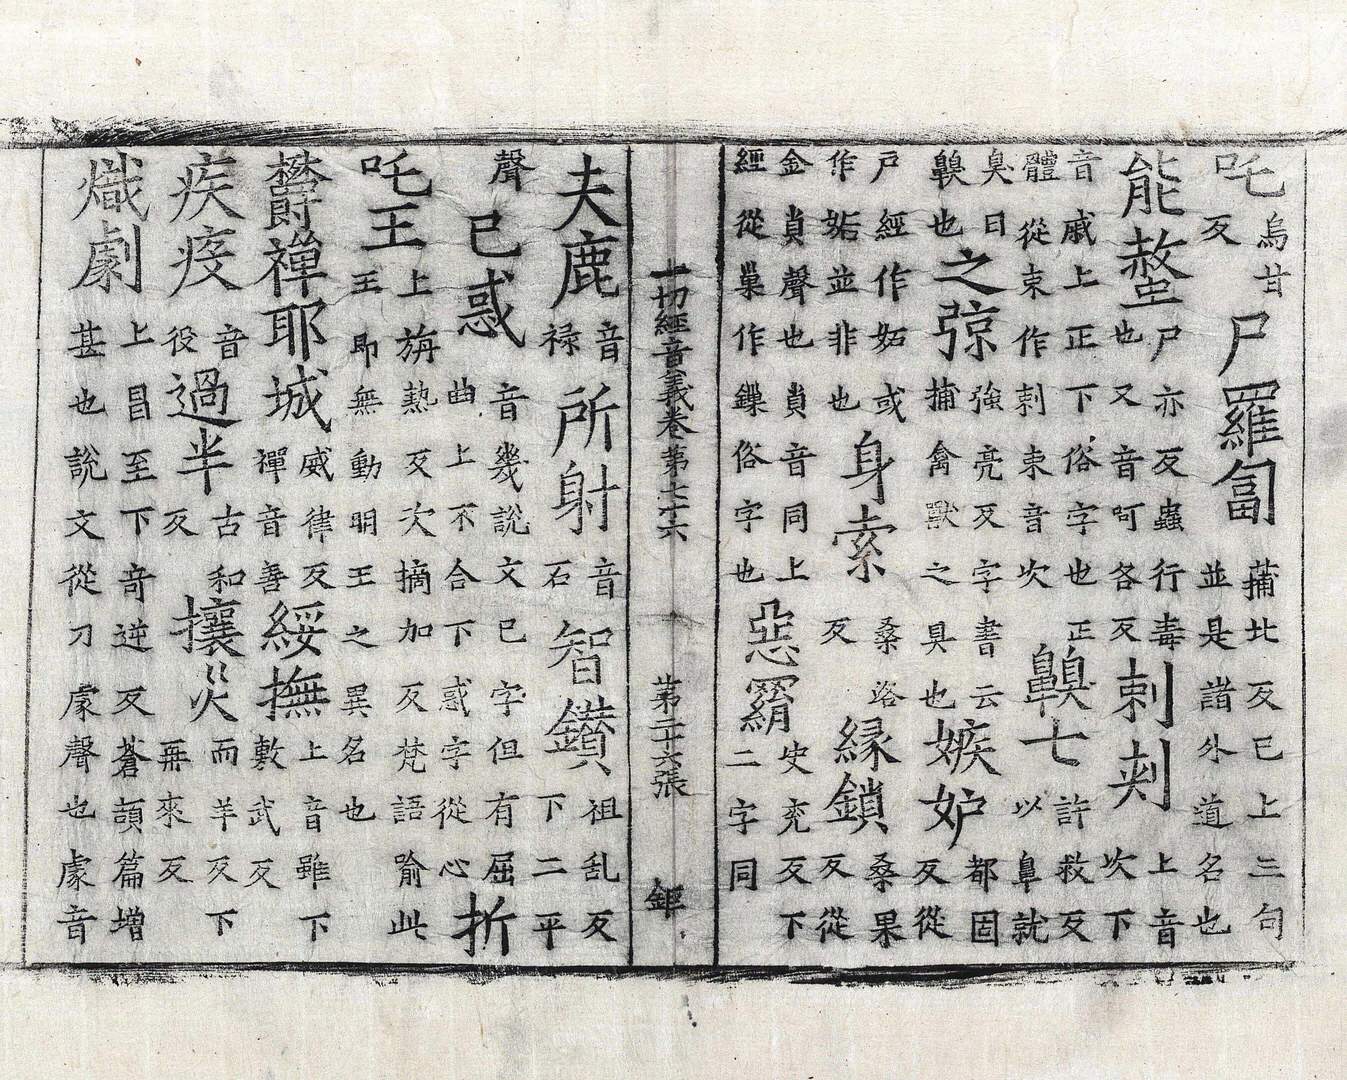 吒烏甘反尸羅匐蒲北反已上三句並是諸外道名也
能螫尸亦反蟲行毒也又音呵各反刺刾上音次下
音戚上正下俗字也正體從朿作刺朿音次齅七許救反以鼻就
臭曰齅也之弶強亮反字書云捕禽獸之具也嫉妒都固反從
戶經作妬或作妬並非也身索桑洛反緣鎖桑果反從
金貟聲也貟音同上經從巢作鏁俗字也惡羂史兖反下二字同
一切經音義卷第七十六 第二十六張 鉅
夫鹿音祿所射音石智鑽祖乱反下二平
聲已惑音幾說文已字但有屈曲上不合下惑字從心折
吒王上旃熱反次摘加反梵語喻此王即無動明王之異名也
欝禪耶城威律反禪音善綏撫上音雖下敷武反
疾疫音役過半古和反攘災而羊反下再來反
熾劇上昌至下奇逆反蒼頡篇增甚也說文從刀豦聲也豦音